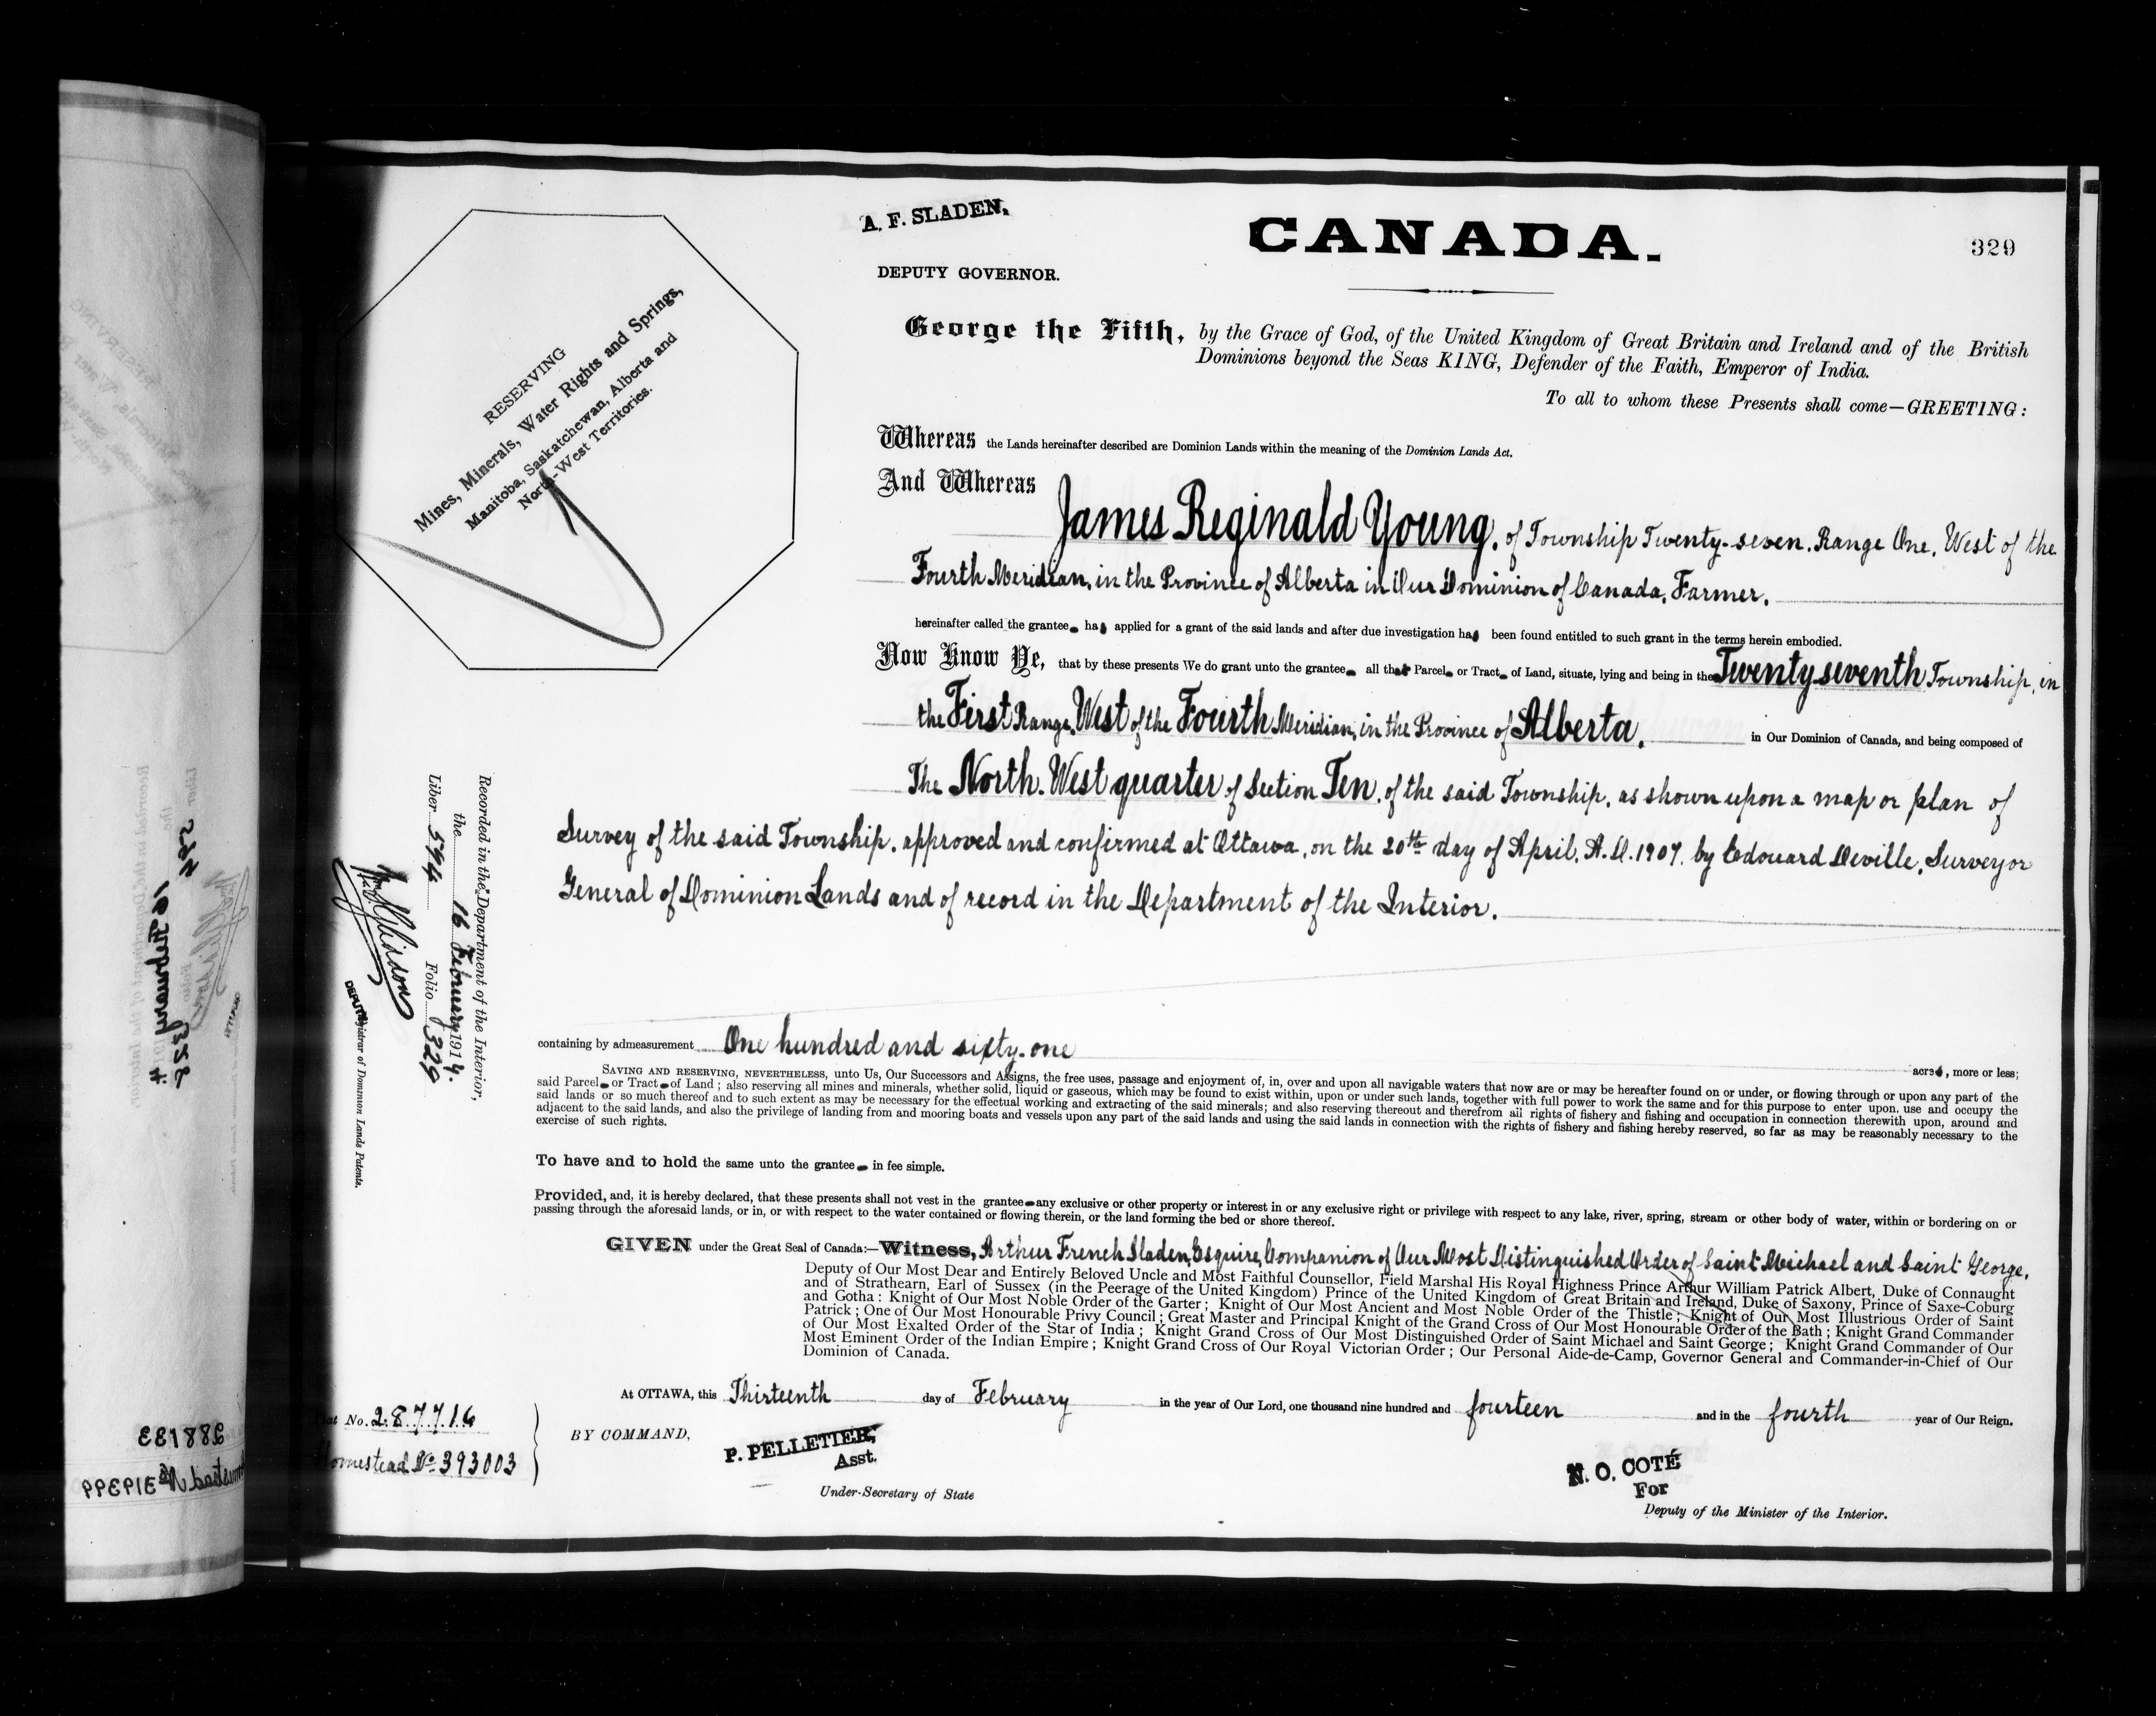 A. F. SLADEN,
DEPUTY GOVERNOR.
CANADA.
329
George the Fifth, by the Grace of God, of the United Kingdom of Great Britain and Ireland and of the British
Dominions beyond the Seas KING, Defender of the Faith, Emperor of India.
To all to whom these Presents shall come—GREETING:
RESERVING
Mines, Minerals, Water Rights and Springs,
Manitoba, Saskatchewan, Alberta and
North-West Territories.
Whereas the Lands hereinafter described are Dominion Lands within the meaning of the Dominion Lands Act.
And Whereas
James Reginald Young, of Township Twenty-seven, Range One, West of the
Fourth Meridian, in the Province of Alberta in Our Dominion of Canada, Farmer,
hereinafter called the grantee has applied for a grant of the said lands and after due investigation has been found entitled to such grant in the terms herein embodied.
Now Know Ye, that by these presents We do grant unto the grantee all that Parcel or Tract of Land, situate, lying and being in the Twenty seventh Township, in
the First Range, West of the Fourth Meridian, in the Province of Alberta, in Our Dominion of Canada, and being composed of
The North-West quarter of Section Ten, of the said Township, as shown upon a map or plan of
Survey of the said Township, approved and confirmed at Ottawa, on the 20th day of April, A.D. 1907, by Edouard Deville, Surveyor
General of Dominion Lands and of record in the Department of the Interior.
containing by admeasurement One hundred and sixty-one acres, more or less;
SAVING AND RESERVING, NEVERTHELESS, unto Us, Our Successors and Assigns, the free uses, passage and enjoyment of, in, over and upon all navigable waters that now are or may be hereafter found on or under, or flowing through or upon any part of the
said Parcel or Tract of Land; also reserving all mines and minerals, whether solid, liquid or gaseous, which may be found to exist within, upon or under such lands, together with full power to work the same and for this purpose to enter upon, use and occupy the
said lands or so much thereof and to such extent as may be necessary for the effectual working and extracting of the said minerals; and also reserving thereout and therefrom all rights of fishery and fishing and occupation in connection therewith upon, around and
adjacent to the said lands, and also the privilege of landing from and mooring boats and vessels upon any part of the said lands and using the said lands in connection with the rights of fishery and fishing hereby reserved, so far as may be reasonably necessary to the
exercise of such rights.
To have and to hold the same unto the grantee in fee simple.
Provided, and, it is hereby declared, that these presents shall not vest in the grantee any exclusive or other property or interest in or any exclusive right or privilege with respect to any lake, river, spring, stream or other body of water, within or bordering on or
passing through the aforesaid lands, or in, or with respect to the water contained or flowing therein, or the land forming the bed or shore thereof.
GIVEN under the Great Seal of Canada:—Witness, Arthur French Sladen, Esquire, Companion of Our Most Distinguished Order of Saint Michael and Saint George,
Deputy of Our Most Dear and Entirely Beloved Uncle and Most Faithful Counsellor, Field Marshal His Royal Highness Prince Arthur William Patrick Albert, Duke of Connaught
and of Strathearn, Earl of Sussex (in the Peerage of the United Kingdom) Prince of the United Kingdom of Great Britain and Ireland, Duke of Saxony, Prince of Saxe-Coburg
and Gotha: Knight of Our Most Noble Order of the Garter; Knight of Our Most Ancient and Most Noble Order of the Thistle; Knight of Our Most Illustrious Order of Saint
Patrick; One of Our Most Honourable Privy Council; Great Master and Principal Knight of the Grand Cross of Our Most Honourable Order of the Bath; Knight Grand Commander
of Our Most Exalted Order of the Star of India; Knight Grand Cross of Our Most Distinguished Order of Saint Michael and Saint George; Knight Grand Commander of Our
Most Eminent Order of the Indian Empire; Knight Grand Cross of Our Royal Victorian Order; Our Personal Aide-de-Camp, Governor General and Commander-in-Chief of Our
Dominion of Canada.
At OTTAWA, this Thirteenth day of February in the year of Our Lord, one thousand nine hundred and fourteen and in the fourth year of Our Reign.
BY COMMAND,
P. PELLETIER,
Asst.
Under-Secretary of State
N. O. COTÉ
For
Deputy of the Minister of the Interior.
No. 287716
Homestead No 393003
Recorded in the Department of the Interior,
the 16 February 1914.
Liber 594 Folio 329
DEPUTY Registrar of Dominion Lands Patents.
Liber 594 Folio 328
16 February 1914
288133
Homestead No 319399